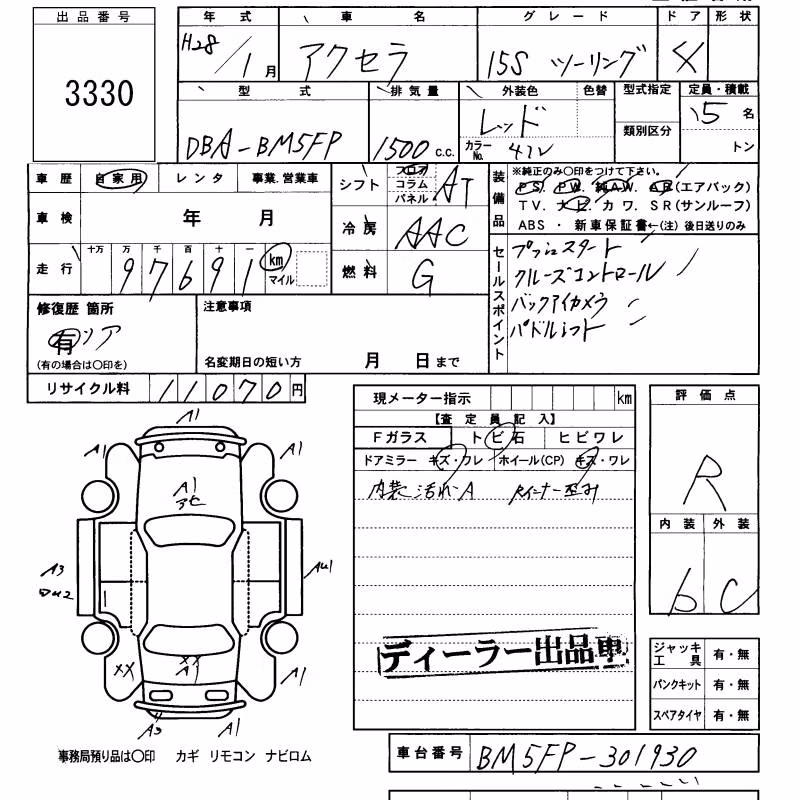 出品番号
3330
年式 車名 グレード ドア 形状
H28/1月 アクセラ 15S ツーリング
型式 排気量 外装色 色替 型式指定 定員・積載
DBA-BM5FP 1500 c.c. レッド 5名
カラーNo. 41V 類別区分 トン
車歴 自家用 レンタ 事業.営業車
シフト フロア コラム パネル AT
装備品
※純正のみ○印をつけて下さい。
PS. PW. 純AW. AB(エアバック)
TV. ナビ. カワ. SR(サンルーフ)
ABS ・ 新車保証書←(注) 後日送りのみ
車検 年 月
冷房 AAC
走行 十万 万 千 百 十
97691 km マイル
燃料 G
セールスポイント
プッシュスタート
クルーズコントロール
バックアイカメラ
パドルシフト
修復歴 箇所
有 リア
(有の場合は○印を)
注意事項
名変期日の短い方 月 日まで
リサイクル料 11070円
現メーター指示 km
【査定員記入】
Fガラス トビ石 ヒビワレ
ドアミラー キズ・ワレ ホイール(CP) キズ・ワレ
内装汚れA Rインナー歪み
評価点
R
内装 外装
b C
A1
A1 A1
A1
アヒ
A3
AU1
XX
XX
A1
A1
A3 A1
ディーラー出品車
ジャッキ工具 有・無
パンクキット 有・無
スペアタイヤ 有・無
事務局預り品は○印 カギ リモコン ナビロム
車台番号 BM5FP-301930